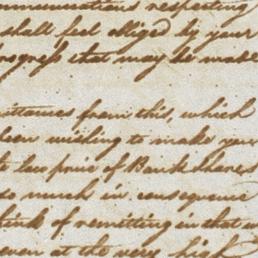 mmunications respecting
shall feel obliged by your
progress that may be made
mittances from this, which
been wishing to make you
low price of Bank shares
so much in consequence
think of remitting in that
even at the very high